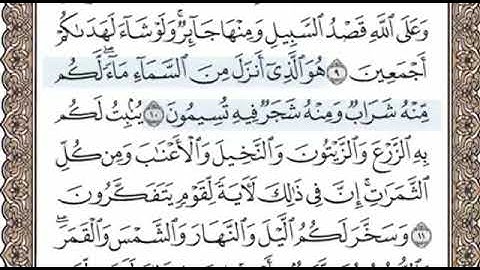 وَعَلَى اللَّهِ قَصْدُ السَّبِيلِ وَمِنْهَا جَائِرٌ وَلَوْ شَاءَ لَهَدَىٰكُمْ
أَجْمَعِينَ ٩ هُوَ الَّذِي أَنزَلَ مِنَ السَّمَاءِ مَاءً لَّكُم
مِّنْهُ شَرَابٌ وَمِنْهُ شَجَرٌ فِيهِ تُسِيمُونَ ١٠ يُنۢبِتُ لَكُم
بِهِ الزَّرْعَ وَالزَّيْتُونَ وَالنَّخِيلَ وَالْأَعْنَٰبَ وَمِن كُلِّ
الثَّمَرَٰتِ إِنَّ فِي ذَٰلِكَ لَآيَةً لِّقَوْمٍ يَتَفَكَّرُونَ
١١ وَسَخَّرَ لَكُمُ الَّيْلَ وَالنَّهَارَ وَالشَّمْسَ وَالْقَمَرَ